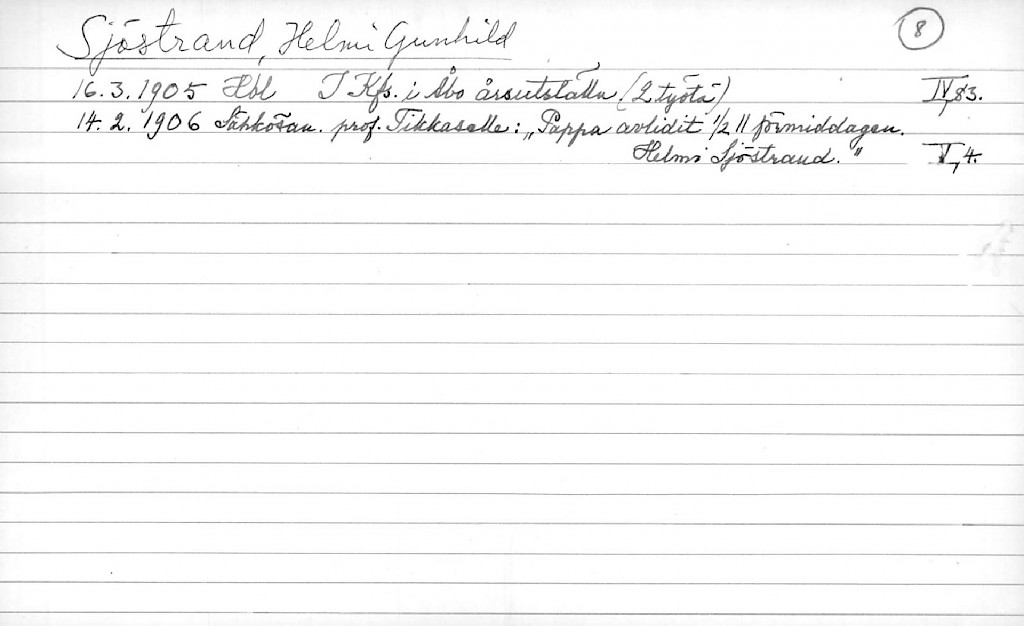 Sjöstrand, Helmi Gunhild
8
16.3.1905 Hbl I Kfs. i Åbo årsutställn (2 työtä) IV,83.
14.2.1906 Sähkösan. prof. Tikkaselle: „Pappa avlidit 1/2 11 förmiddagen.
Helmi Sjöstrand." V,4.